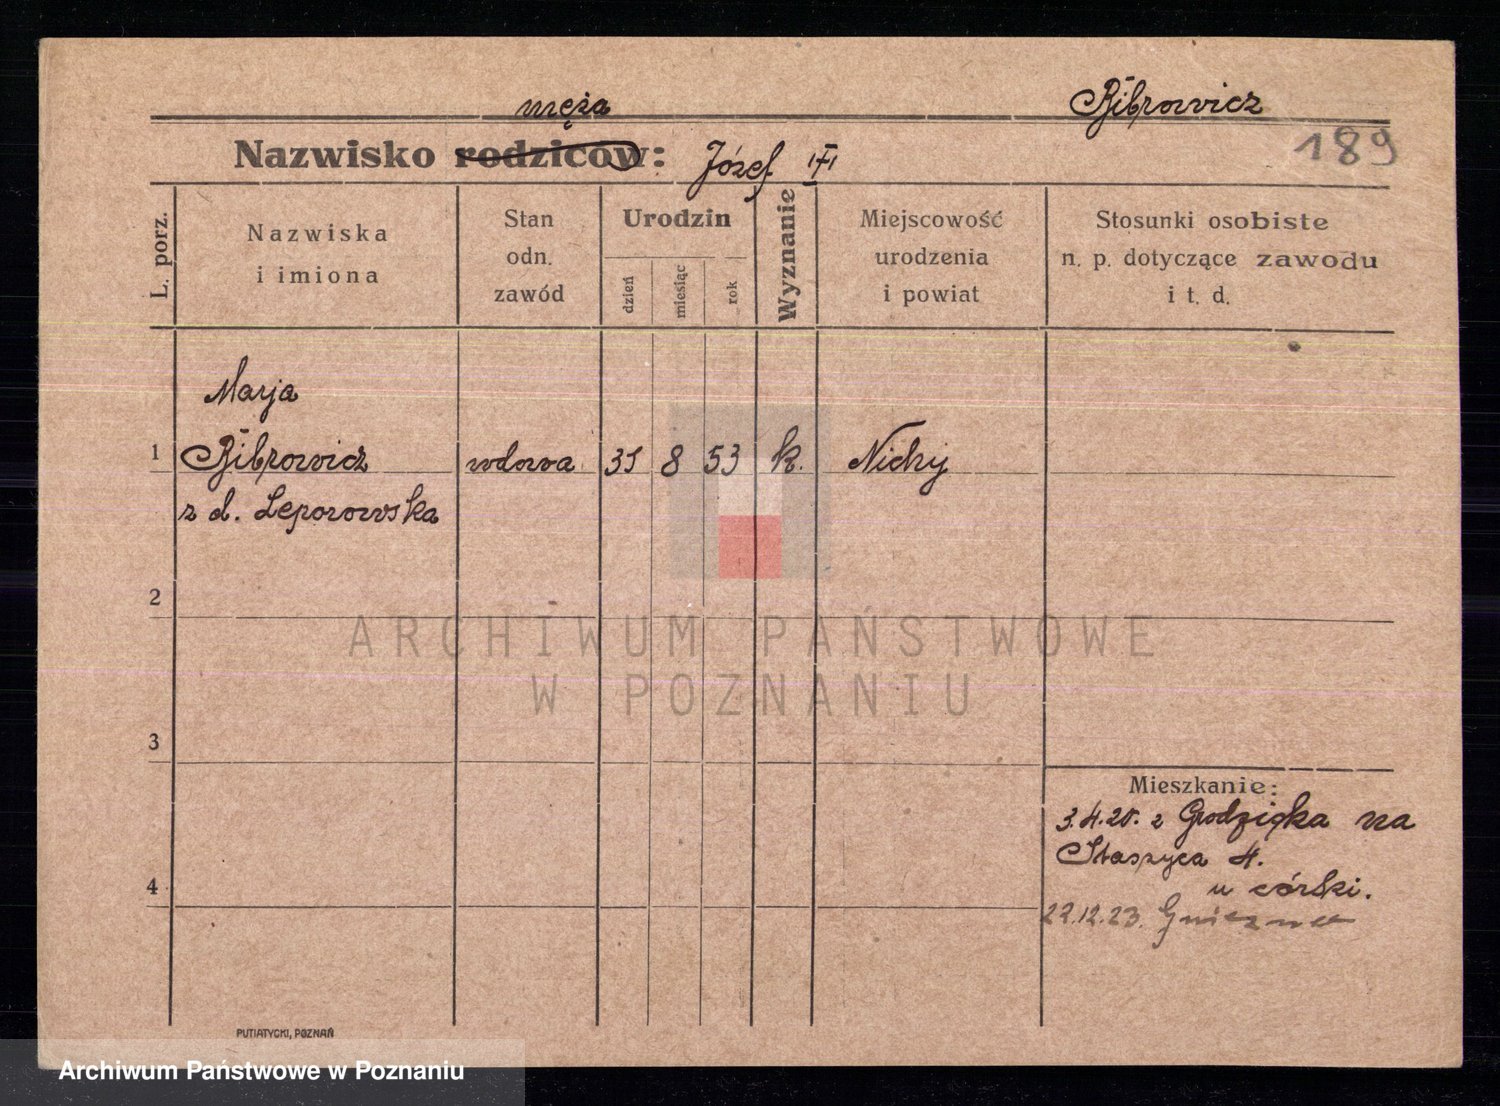 męża
Bibrowicz
Nazwisko rodziców: Józef
189
L. porz.
Nazwiska
i imiona
Stan
odn.
zawód
Urodzin
dzień
miesiąc
rok
Wyznanie
Miejscowość
urodzenia
i powiat
Stosunki osobiste
n. p. dotyczące zawodu
i t. d.
Marja
1 Bibrowicz wdowa 31 8 53 k. Nichy
z d. Leporowska
2
ARCHIWUM PAŃSTWOWE
W POZNANIU
3
Mieszkanie:
3.4.20. z Grodziska na
Staszyca 4.
4
u córki.
22.12.23. Gniezno
PUTIATYCKI, POZNAŃ
Archiwum Państwowe w Poznaniu